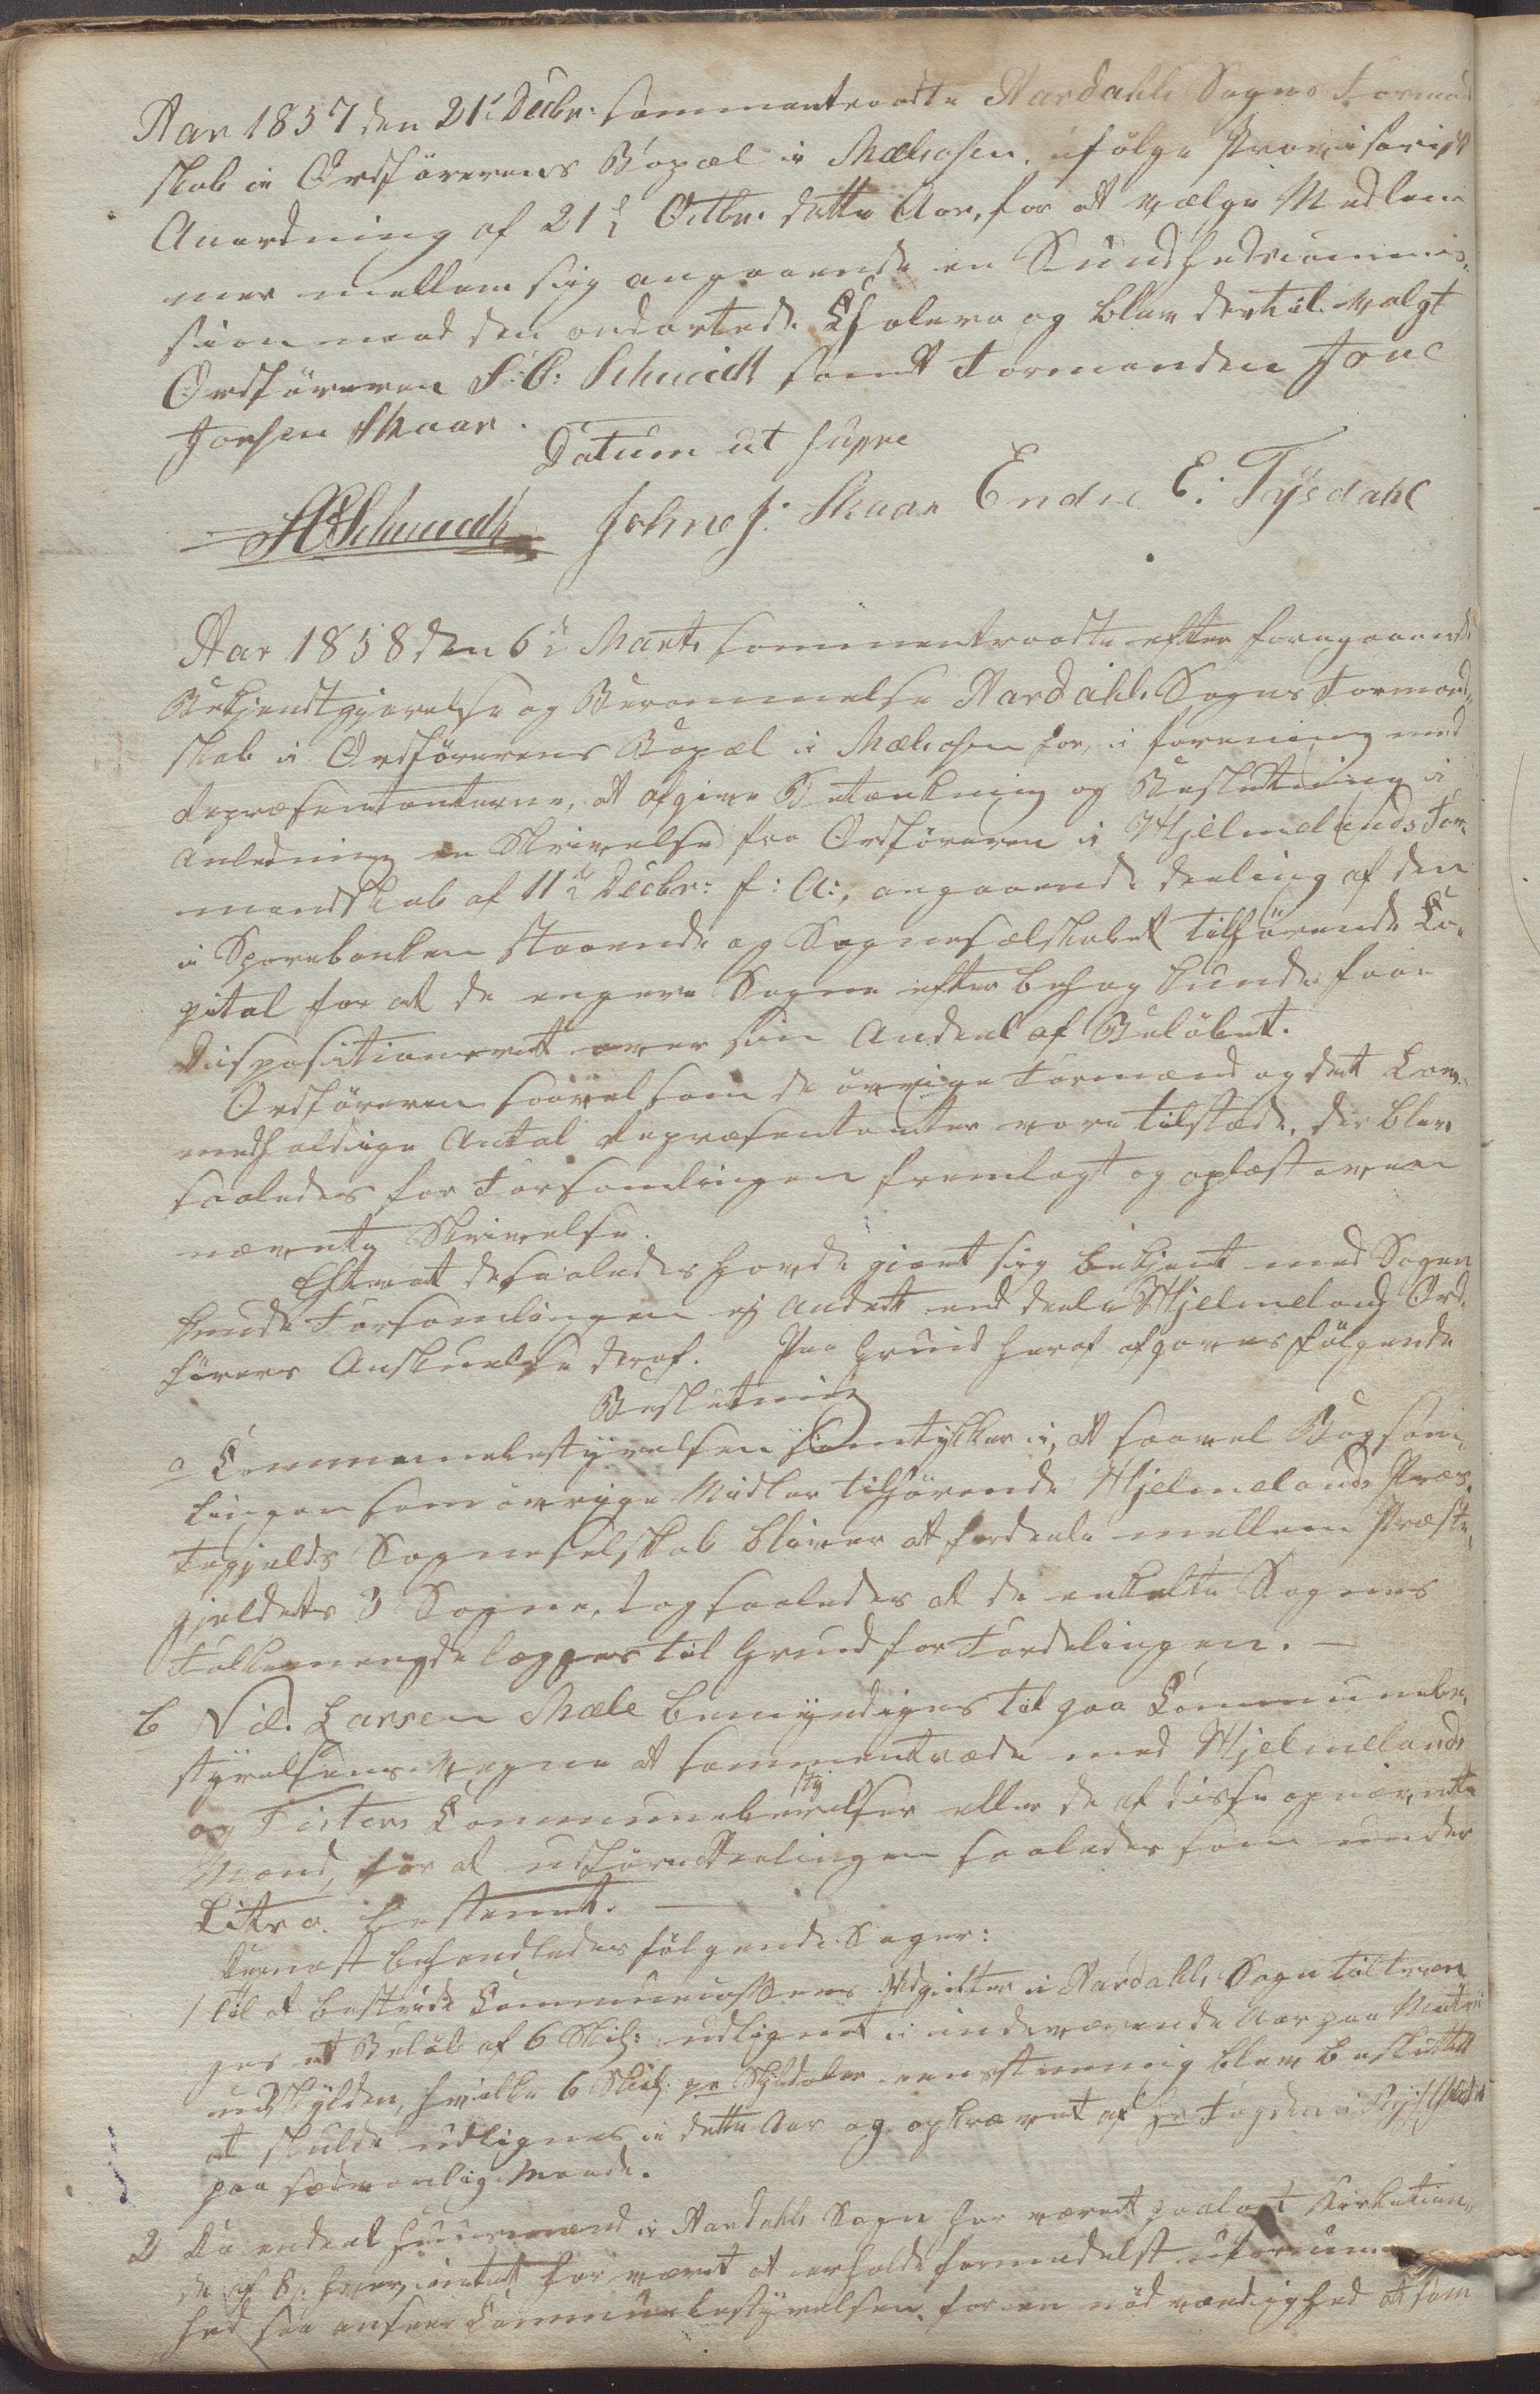 Aar 1857 den 21' Decbr: sammentraadte Aardahls Sogns Formand
skab i Ordförerens Bopæl i Mælaosen, ifølge Provisorisk
Anordning af 21d Octbr. dette Aar, for at vælge Medlem
mer mellem sig angaaende en Sundhedscommis,,
sion mod den ondartede Cholera og blev dertil valgt
Ordföreren S. B. Schmidt samt Formanden Jone
Jonsen Skaar.
Datum ut supra
SBSchmidt Johne J: Skaar Endre E: Tÿsdahl
Aar 1858 den 6te Marts sammentraadte efter foregaaende
Bekjendtgjørelse og Berammelse Aardahls Sogns Formand,,
skab i Ordförerens Bopæl i Mælaosen for, i forening med
Repræsentanterne, at afgive Betænkning og Beslutning i
anledning en Skrivelse fra Ordföreren i Hjelmelands For,,
mandskab af 11te Decbr: f: A:, angaaende deeling af den
i Sparebanken staaende og Sogneselskabet tilhörende Ca,,
pital for at de engere Sogne efter behag kunde faae
Dispositionsret over sin Andeel af Belöbet.
Ordföreren saavel som de övrige Formænd og det Lov,,
medholdige Antal Repræsentanter vare tilstæde, der blev
saaledes for Forsamlingen fremlagt og oplæst oven
nævnte Skrivelse.
Efterat de saaledes havde gjort sig bekjent med Sagen
kunde Forsamlingen ej Andet end deele Hjelmeland Ord,,
förers Anskuelse deraf. Paa Grund heraf afgaves følgende
Beslutning
a Communebestÿrelsen samtÿkker i, at saavel Bogsam,,
lingen som övrige Midler tilhörende Hjelmelands Præs,,
tegjelds Sogneselskab bliver at fordeele mellem Præste,,
gjeldets 3 Sogne, dog saaledes at de enkelte Sognes
Folkemengde lægges til Grund for Fordelingen. —
b Nil. Larsen Mæle bemÿndiges til paa Communebe,,
stÿrelsens Vegne at sammentræde med Hjelmelands
og Fisters Communebestyrelser eller de af disse opnævnte
Mænd, for at udföre Deelingen saaledes som under
Litr a. bestemt. —
Dernæst behandledes følgende Sager:
1 Til at bestride Communecassens Udgifter i Aardahls Sogn tiltræn
ges et Belöb af 6 Skil: udlignet i indeværende Aar paa Matri
culskÿlden, hvilke 6 Skil: pr Skÿlddaler eenstemmig blev besluttet
at skulde udlignes i dette Aar og opkrævet af Hr Fogden i Rÿfÿlke
paa sædvanlig Maade.
2 Da endeel Huusmænd i Aardahls Sogn har været paalagt Kirketien,,
de af 8s hver, intet har været at erholde formedelst uformuen
hed saa anseer Communebestÿrelsen for en nödvendighed at som